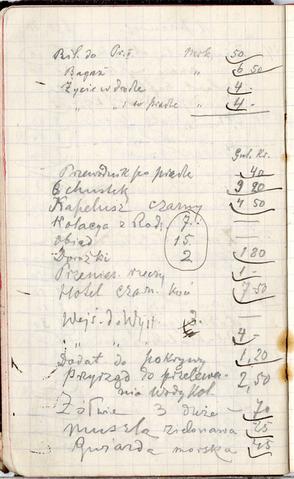 Bil. do Mrk. 50
Bagaż " 6 50
Życie w drodze 4 -
" " i w " 4 -
Gul. Kr.
Przewodnik po 40
6 chustek 9 80
Kapelusz czarny 4 50
Kolacya z 7.
Obiad 15.
Dorożki 2 1 80
Przenies. rzeczy 1 -
Hotel czarn. koń 7 50
Wejś. do Wyst. 3.
" " 4 -
Dodat. do pokrywy 1,20
Przyrząd do przelewa- 2,50
nia wody kol.
Żółwie 3 duże - 70
muszla zielonawa 25
Gwiazda morska 45